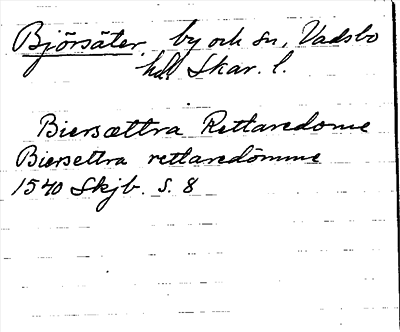 Björsäter, by och sn, Vadsbo
hd Skar. l.
Biersættra Rettaredome
Biersettra rettaredömme
1540 Skjb. S. 8